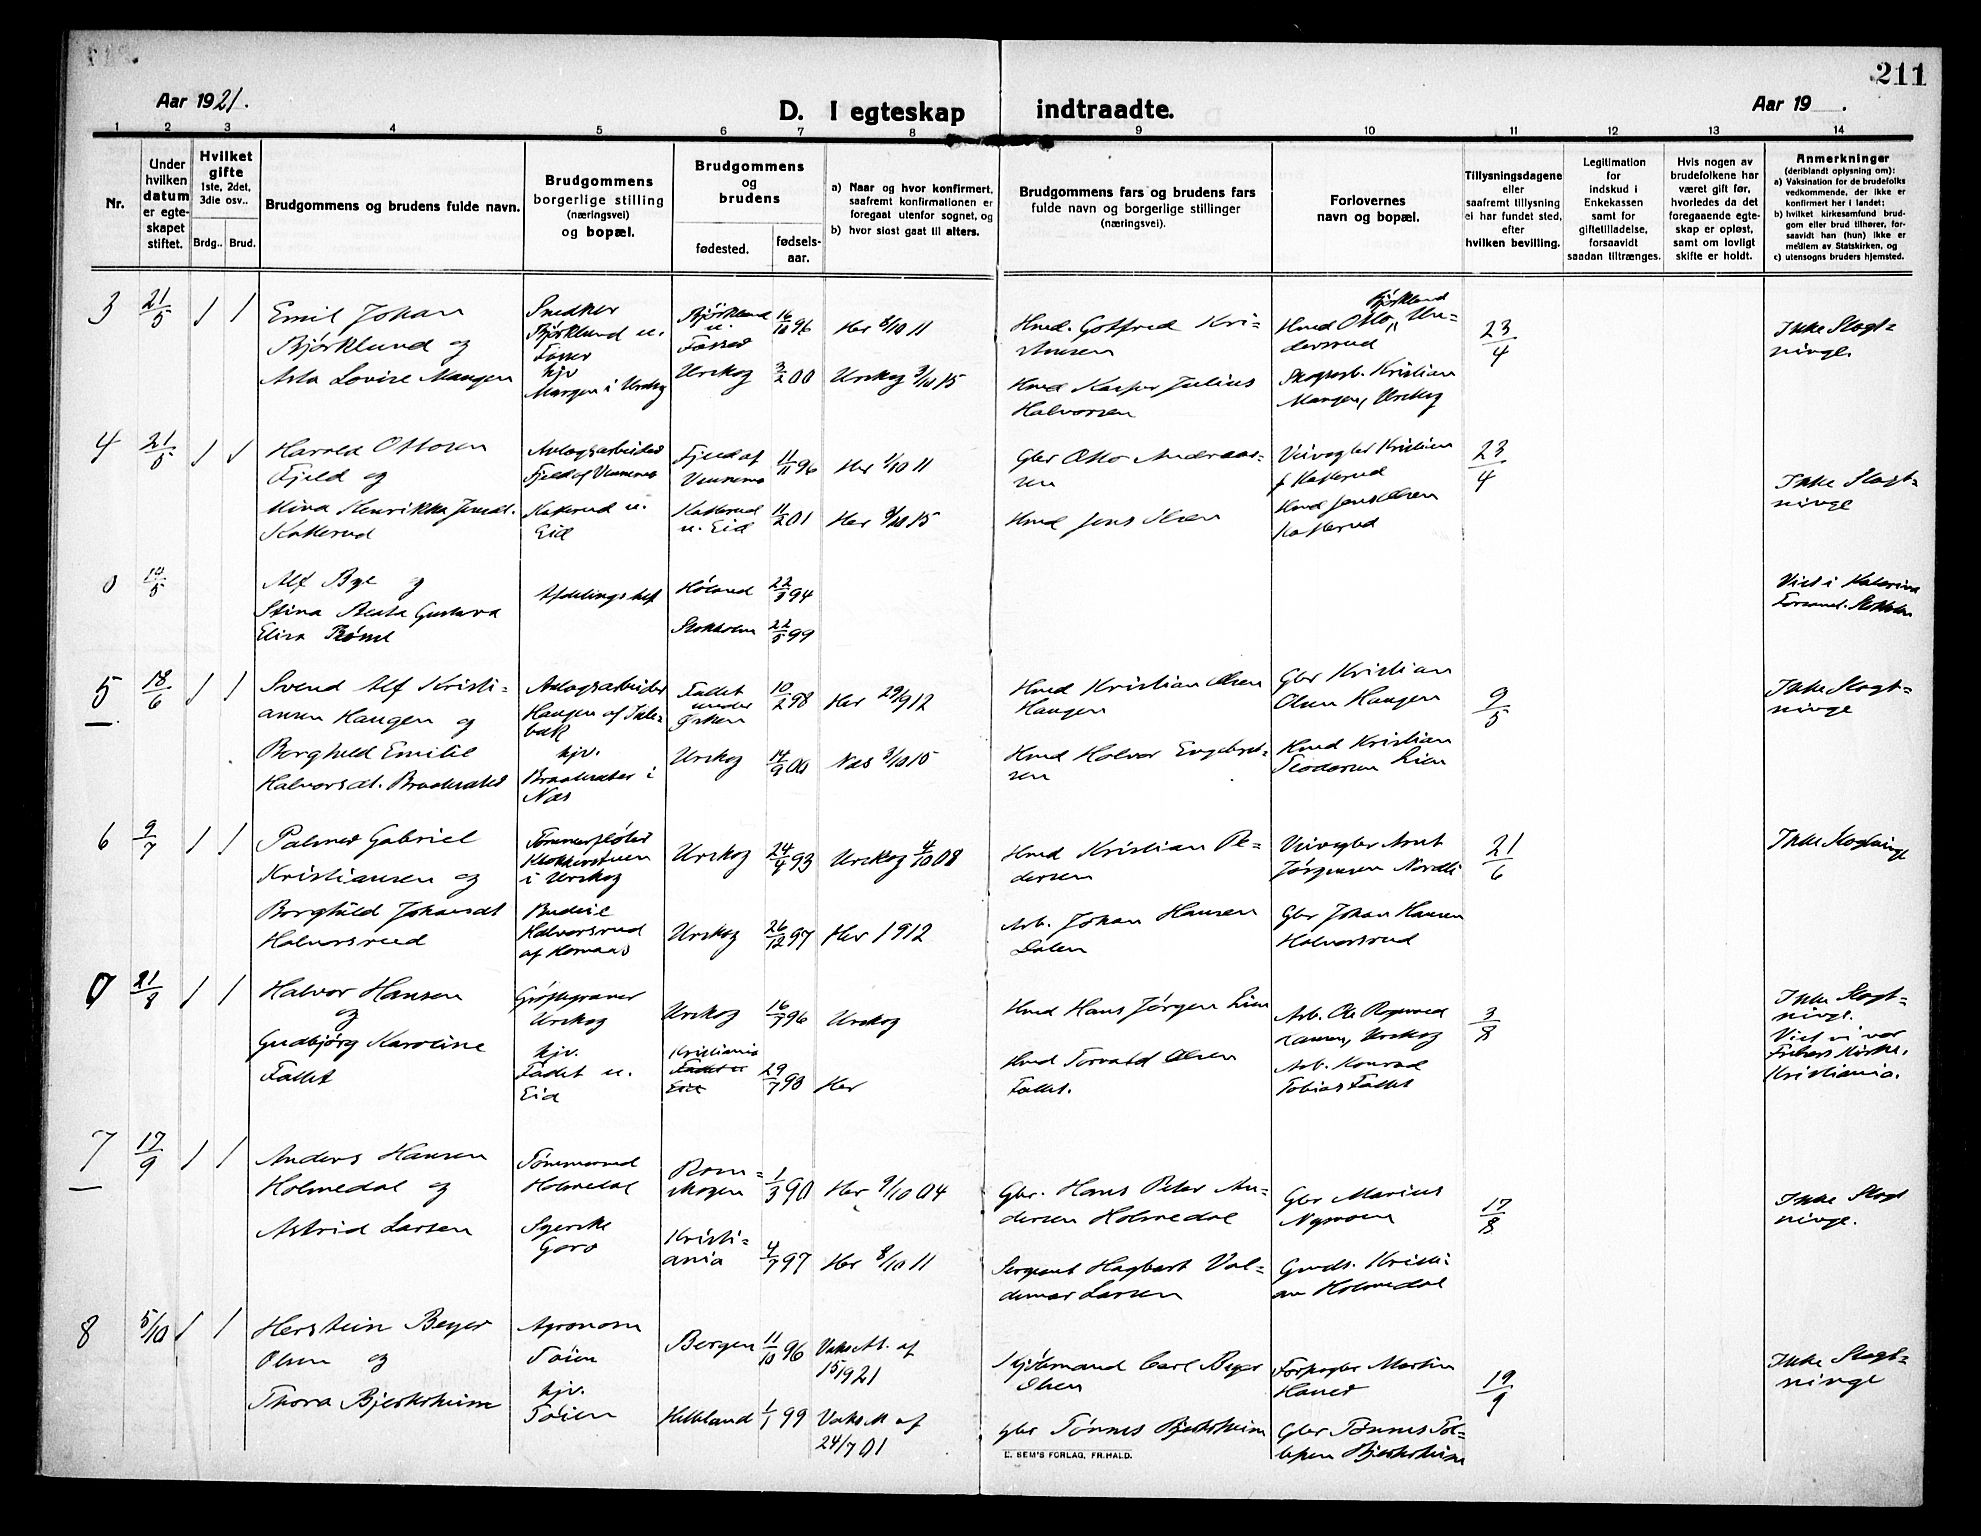 211
Aar 1921.
D. I egteskap indtraadte.
Aar 19 .
1 2 3 4 5 6 7 8 9 10 11 12 13 14
Nr.
Under hvilken datum er egteskapet stiftet.
Hvilket gifte 1ste, 2det, 3die osv..
Brdg.. Brud.
Brudgommens og brudens fulde navn.
Brudgommens borgerlige stilling (næringsvei) og bopæl.
Brudgommens og brudens
fødested.
fødselsaar.
a) Naar og hvor konfirmert, saafremt konfirmationen er foregaat utenfor sognet, og
b) hvor sidst gaat til alters.
Brudgommens fars og brudens fars fulde navn og borgerlige stillinger (næringsvei).
Forlovernes navn og bopæl.
Tillysningsdagene eller saafremt tillysning ei har fundet sted, efter hvilken bevilling.
Legitimation for indskud i Enkekassen samt for giftetilladelse, forsaavidt saadan tiltrænges.
Hvis nogen av brudefolkene har været gift før, hvorledes da det foregaaende egteskap er opløst, samt om lovligt skifte er holdt.
Anmerkninger (deriblandt oplysning om):
a) Vaksination for de brudefolks vedkommende, der ikke er konfirmert her i landet;
b) hvilket kirkesamfund brudgom eller brud tilhører, forsaavidt han (hun) ikke er medlem av Statskirken, og
c) utensogns bruders hjemsted.
3 21/5 1 1
Emil Johan
Bjørklund og
Asta Lovise Mangen
Snedker
Bjørklund u.
Fosser
hjv
Mangen i Urskog
Bjørklund
u.
Fosser
16/10 96
Her 8/10 11
Urskog 3/2 00 Urskog 3/10 15
Hmd. Gotfred Kristiansen
Hmd Kasper Julius
Halvorsen
Bjørklund
Hmd Otto
Skogsarb. Kristian
Mangen, Urskog
23/4
Ikke Slegtninge.
4 21/5 1 1
Harald Ottosen
Fjeld og
Mina Henrikka Jensdt.
Kokkerud
Anlægsarbeider
Fjeld af
Kokkerud u.
Eid
Fjeld af
11/11 96
Her 1/10 11
Kokkerud
u. Eid
11/2 01
Her 3/10 15
Gbr Otto Andreassen
Hmd Jens Olsen
Veivogter Kristian
Kokkerud
Hmd Jens Olsen
Kokkerud
23/4
Ikke Slegtninge
0 10/5
Alf Bye og
Stina Beata Gustava
Elisa
Afdelingschef
Høland
Stokholm 22/5 99
Viet i Katarina
Forsaml. Stokholm
5 18/6 1 1
Svend Alf Kristiansen Haugen og
Borghild Emilie
Halvorsdt. Braatesæter
Anlægsarbeider
Haugen af
hjv.
Braatesæter i
Næs
Fallet
under
10/2 98
Her 29/9 12
Urskog 14/9 00 Næs 3/10 15
Hmd Kristian Olsen
Haugen
Hmd Halvor Engebretsen
Gbr Kristian
Olsen Haugen
Hmd Kristian
Teodorsen Lien
9/5
Ikke Slegtninge
6 9/7 1 1
Palmer Gabriel
Kristiansen og
Borghild Johansdt
Halvorsrud
Tømmerfløter
i Urskog
Budeie
Halvorsrud
af
Urskog 24/4 93 Urskog 4/10 08
Urskog 26/12 97 Her 1912
Hmd Kristian Pedersen
Arb. Johan Hansen
Dalen
Veivogter Arnt
Jørgensen Nordli
Gbr Johan Hansen
Halvorsrud
21/6
Ikke Slegtninge
0 21/8 1 1
Halvor Hansen
og
Gudbjørg Karoline
Fallet
Grøftegraver
Urskog
hjv.
Fallet u.
Eid
Urskog 16/7 96 Urskog
Kristiania
Fallet u
Eid
29/7 98 Her
Hmd Hans Jørgen Lien
Hmd Torvald Olsen
Fallet.
Arb. Ole
Urskog
Arb. Konrad
Tobias Fallet
3/8
Ikke Slegtninge.
Viet i vor
Frelsers Kirke,
Kristiania.
7 17/9 1 1
Anders Hansen
Holmedal og
Astrid Larsen
Holmedal
Romskogen
1/3 90
Her 9/10 04
Kristiania
4/7 97
Her 8/10 11
Gbr. Hans Peter Andersen Holmedal
Sergeant Hagbart Valdemar Larsen
Gbr Marius
Nymoen
Gmds. Kristian Holmedal
17/8
Ikke Slegtninge.
8 5/10 1 1
Herstein Beyer
Olsen og
Thora Bjerksheim
Agronom
Toien
hjv.
Toien
Bergen 11/10 96 Vaks. At. af
15/9 21
Helleland 1/1 99 Vaks At af
24/7 01
Carl Beyer
Olsen
Gbr Tønnes Bjerksheim
Forpagter Martin
Haner
Gbr Tønnes Tollefsen Bjerksheim
19/9
Ikke Slegtninge
E. SEM'S FORLAG, FR.HALD.